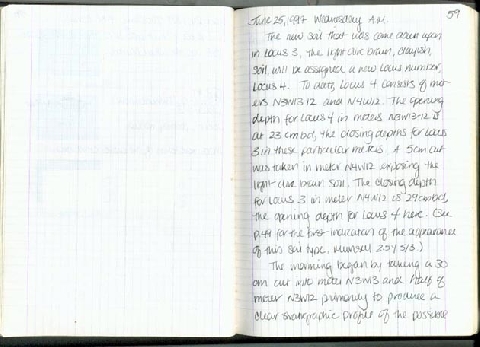 59
June 25, 1997 Wednesday A.M.
The new soil that was came down upon
in Locus 3, the light olive brown, clayish
soil, will be assigned a new Locus number,
Locus 4. To date, Locus 4 consists of met-
ers N3W12 and N4W12. The opening
depth for Locus 4 in meters N3W12
at 23 cmbd, the closing depths for Locus
3 in these particular meters. A 5cm cut
was taken in meter N4W12 exposing the
light olive brown soil. The closing depth
for Locus 3 in meter N4W12 is 29cmbd,
the opening depth for Locus 4 here. (See
p.44 for the first indication of the appearance
of this soil type, Munsell 2.5Y 5/3.)
The morning began by taking a 30
cm cut into meter N3W13 and half of
meter N3W12 primarily to produce a
clear stratigraphic profile of the possible